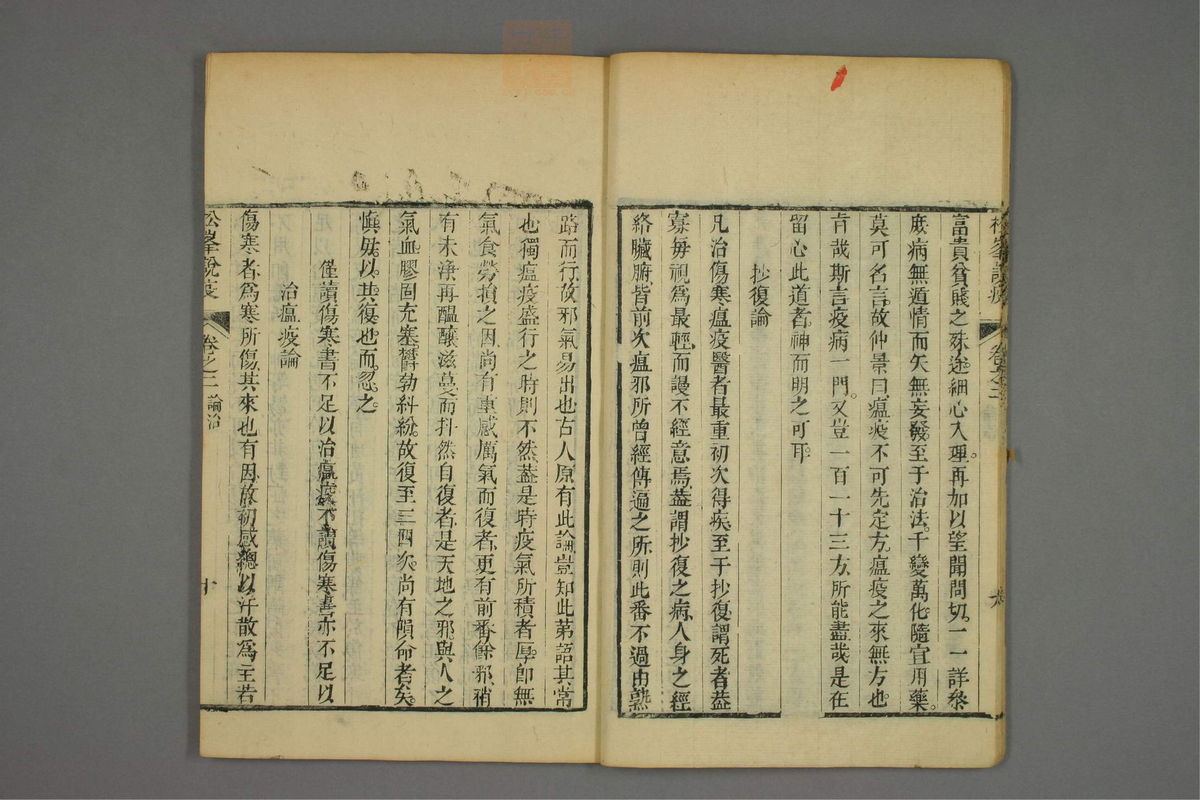 富貴貧賤之殊途細心入理再加以望聞問切一一詳黎
庶病無遁情而矢無妄發至于治法千變萬化隨宜用藥
莫可名言故仲景曰瘟疫不可先定方瘟疫之來無方也
肯哉斯言疫病一門又豈一百一十三方所能盡哉是在
留心此道者神而明之可耳
抄復論
凡治傷寒瘟疫醫者最重初次得疾至于抄復謂死者葢
寡每視爲最輕而謾不經意焉葢謂抄復之病人身之經
絡臟腑皆前次瘟邪所曾經傳遍之所則此番不過由熟
路而行故邪氣易出也古人原有此論豈知此第語其常
也獨瘟疫盛行之時則不然葢是時疫氣所積者厚即無
氣食勞損之因尚有重感厲氣而復者更有前番餘邪稍
有未淨再醞釀滋蔓而抖然自復者是天地之邪與人之
氣血膠固充塞鬱勃糾紛故復至三四次尚有隕命者矣
愼毋以其復也而忽之
僅讀傷寒書不足以治瘟疫不讀傷寒書亦不足以
治瘟疫論
傷寒者爲寒所傷其來也有因故初感總以汗散爲主若
松峯說疫
卷之二
論治
十